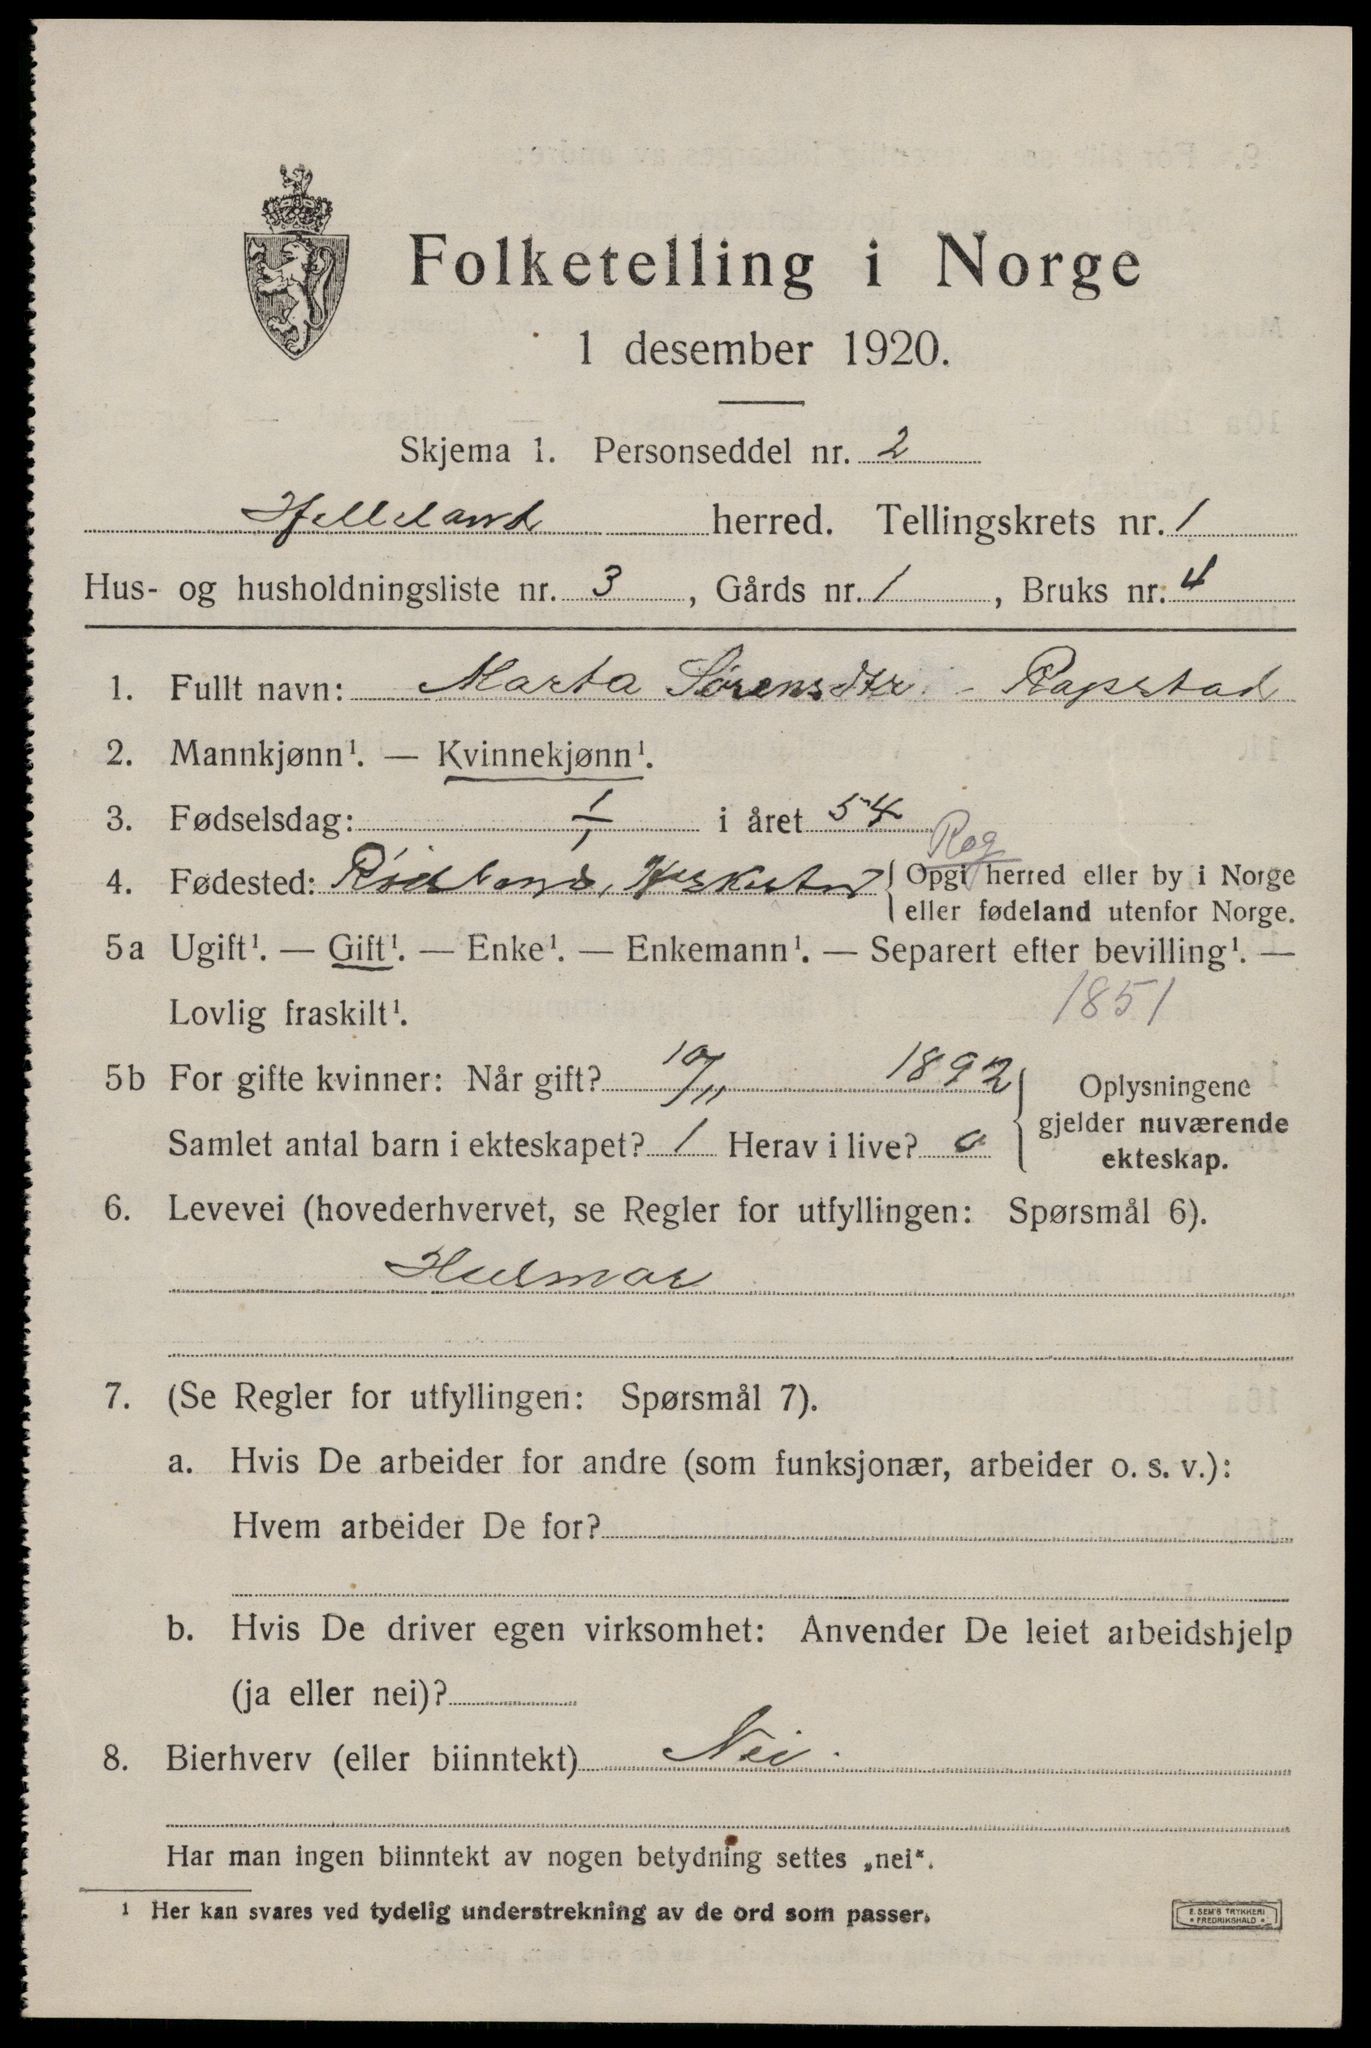 Folketelling i Norge
1 desember 1920.
Skjema 1. Personseddel nr. 2
Helleland herred. Tellingskrets nr. 1
Hus- og husholdningsliste nr. 3, Gårds nr. 1, Bruks nr. 4
1. Fullt navn: Marta Sørensdtr. Rapstad
2. Mannkjønn¹. — Kvinnekjønn¹.
3. Fødselsdag: 1/1 i året 54
Rog
4. Fødested: Rødland, Heskestad { Opgi herred eller by i Norge
eller fødeland utenfor Norge.
5a Ugift¹. — Gift¹. — Enke¹. — Enkemann¹. — Separert efter bevilling¹. —
Lovlig fraskilt¹. 1851
5b For gifte kvinner: Når gift? 10/11 1892 { Oplysningene
gjelder nuværende
Samlet antal barn i ekteskapet? 1 Herav i live? 0
ekteskap.
6. Levevei (hovederhvervet, se Regler for utfyllingen: Spørsmål 6).
Husmor
7. (Se Regler for utfyllingen: Spørsmål 7).
a. Hvis De arbeider for andre (som funksjonær, arbeider o. s. v.):
Hvem arbeider De for?
b. Hvis De driver egen virksomhet: Anvender De leiet arbeidshjelp
(ja eller nei)?
8. Bierhverv (eller biinntekt) Nei.
Har man ingen biinntekt av nogen betydning settes „nei“.
¹ Her kan svares ved tydelig understrekning av de ord som passer.
E. SEM'S TRYKKERI
* FREDRIKSHALD *